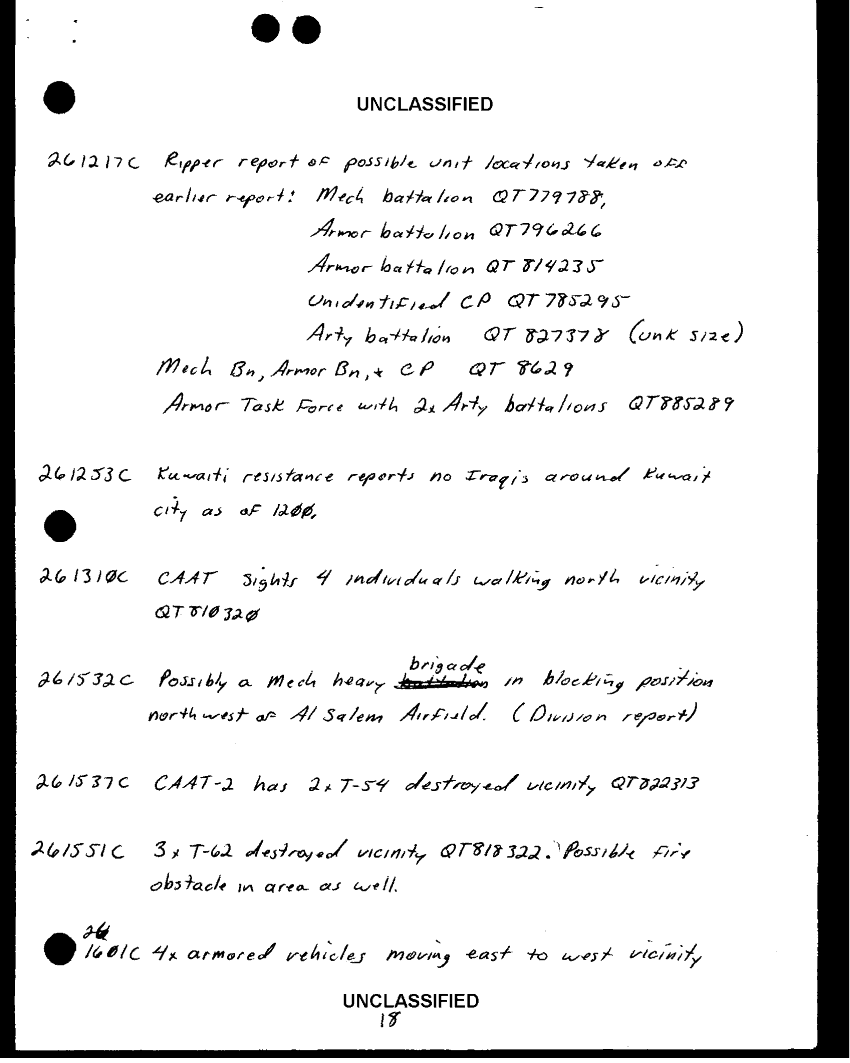 UNCLASSIFIED
261217C Ripper report of possible unit locations taken off
earlier report: Mech battalion QT779788,
Armor battalion QT796266
Armor battalion QT814235
Unidentified CP QT785295
Arty battalion QT 827378 (unk size)
Mech Bn, Armor Bn, + CP QT 8629
Armor Task Force with 2x Arty battalions QT885289
261253C Kuwaiti resistance reports no Iraqis around Kuwait
city as of 12ØØ.
26131ØC CAAT sights 4 individuals walking north vicinity
QT81Ø32Ø
brigade
261532C Possibly a Mech heavy battalion in blocking position
northwest of Al Salem Airfield. (Division report)
261537C CAAT-2 has 2x T-54 destroyed vicinity QT822313
261551C 3x T-62 destroyed vicinity QT818322. Possible fire
obstacle in area as well.
26
16Ø1C 4x armored vehicles moving east to west vicinity
UNCLASSIFIED
18